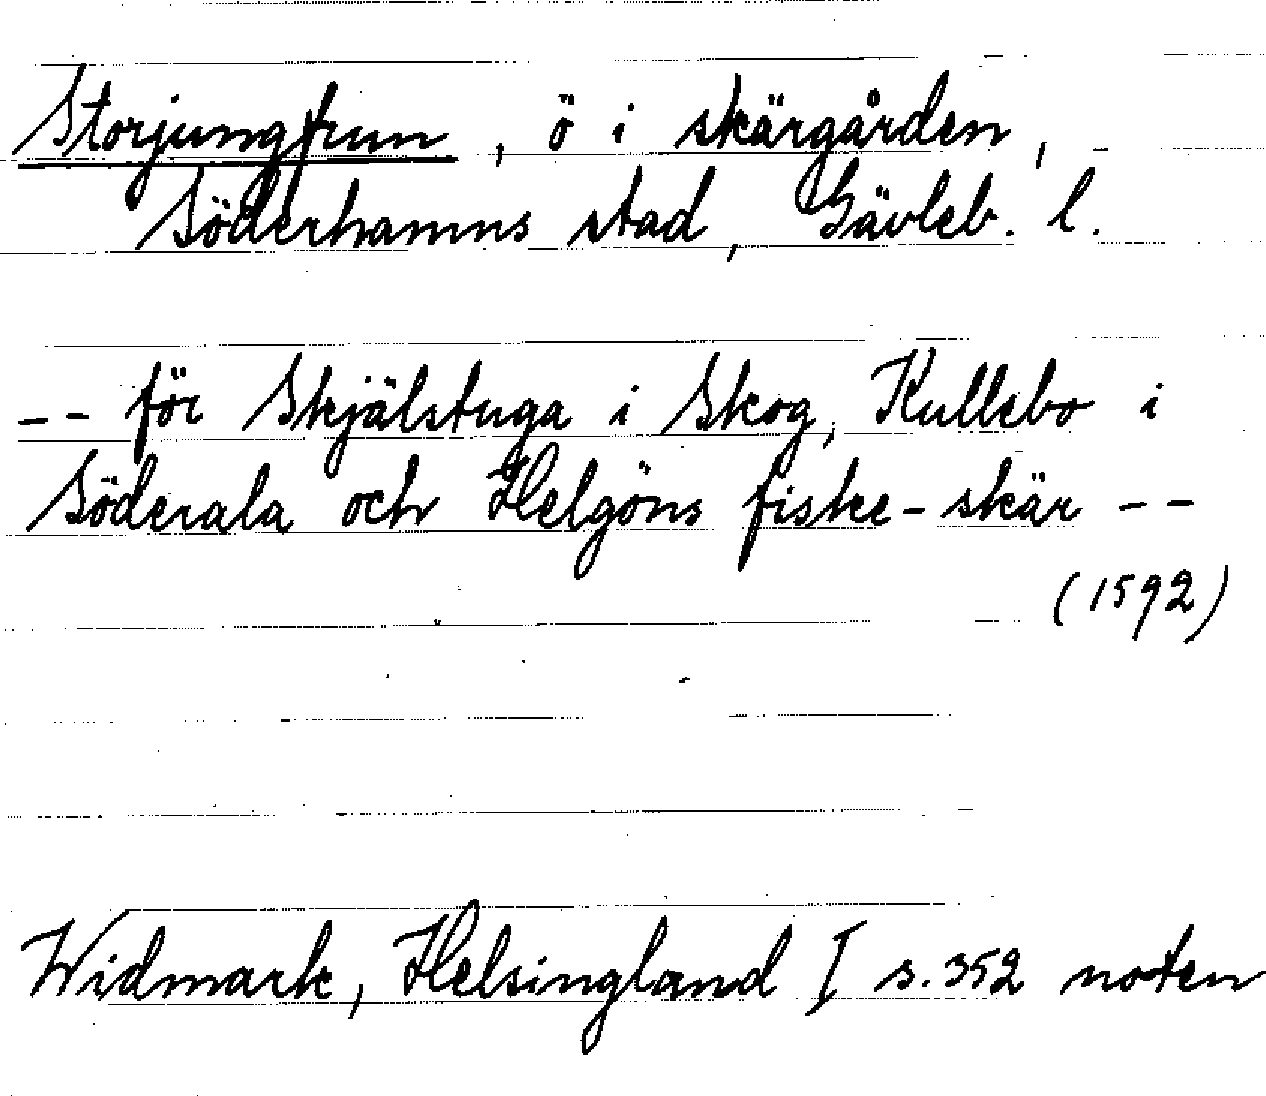 Storjungfrun, ö i skärgården,
Söderhamns stad, Gävleb. l.
-- för Skjälstuga i Skog, Kullebo i
Söderala och Helgöns fiske-skär --
(1592)
Widmark, Helsingland I s. 352 noten